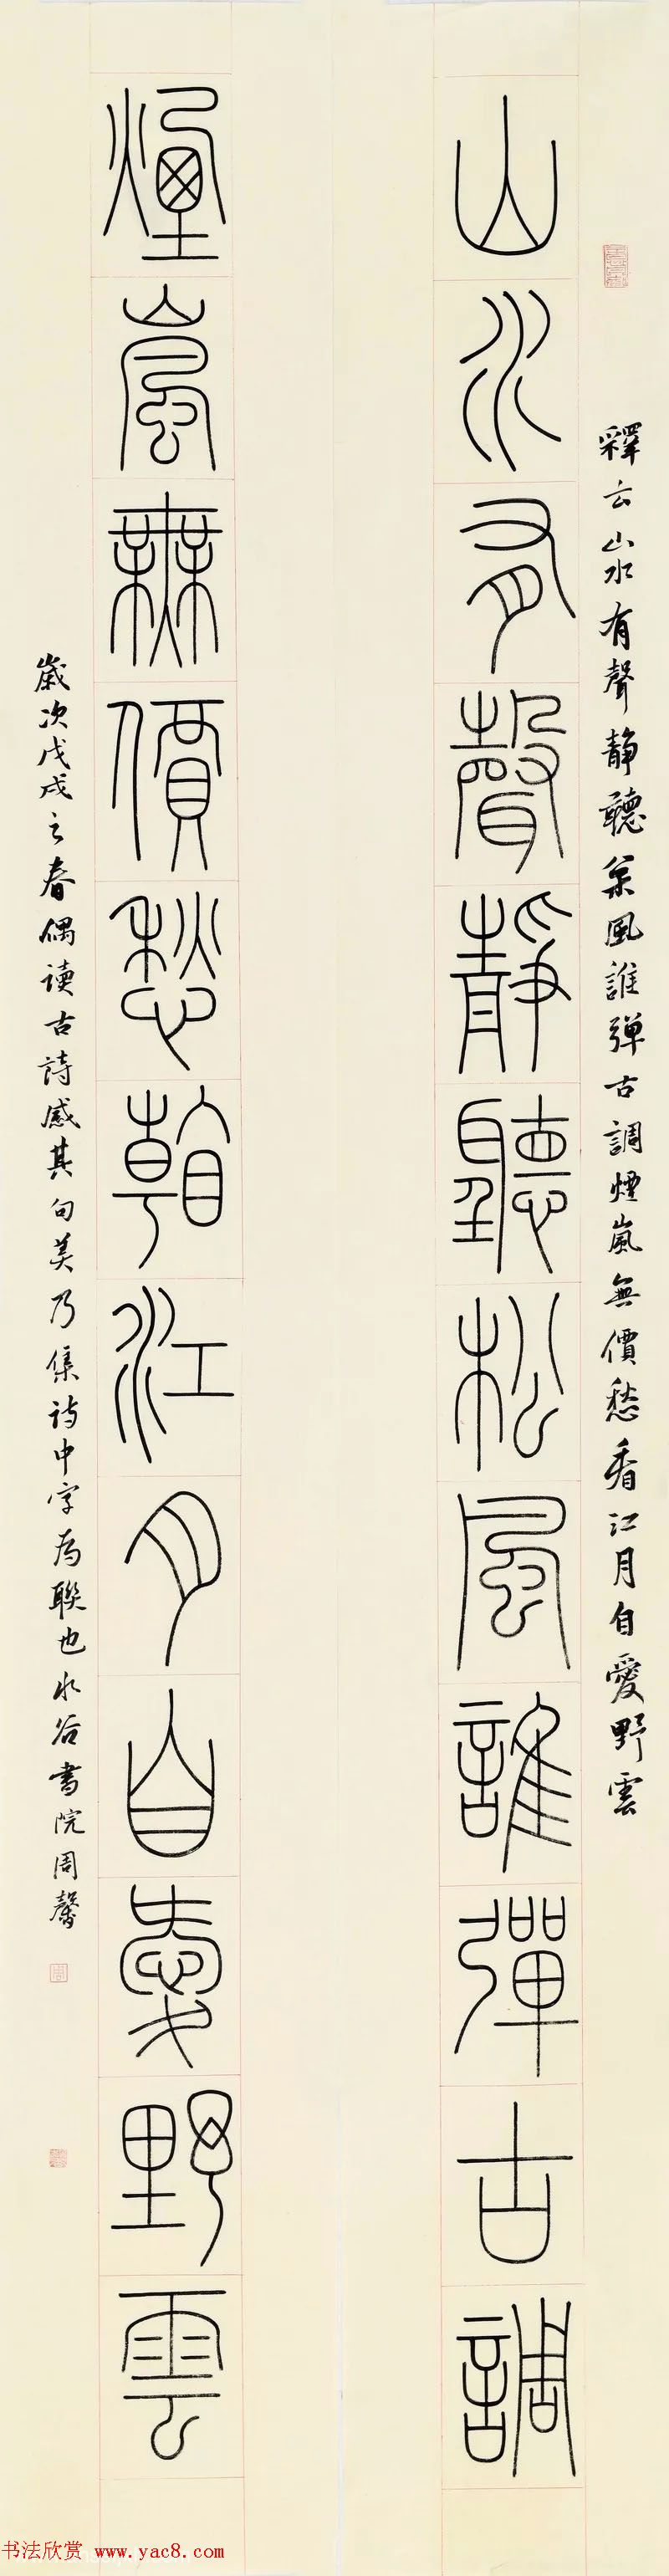 釋云山水有聲靜聽松風誰彈古調煙嵐無價愁看江月自愛野雲
山水有聲靜聽松風誰彈古調
煙嵐無價愁看江月自愛野雲
歲次戊戌之春偶读古詩感其句美乃集诗中字為聯也水谷書院周馨
书法欣赏 www.yac8.com